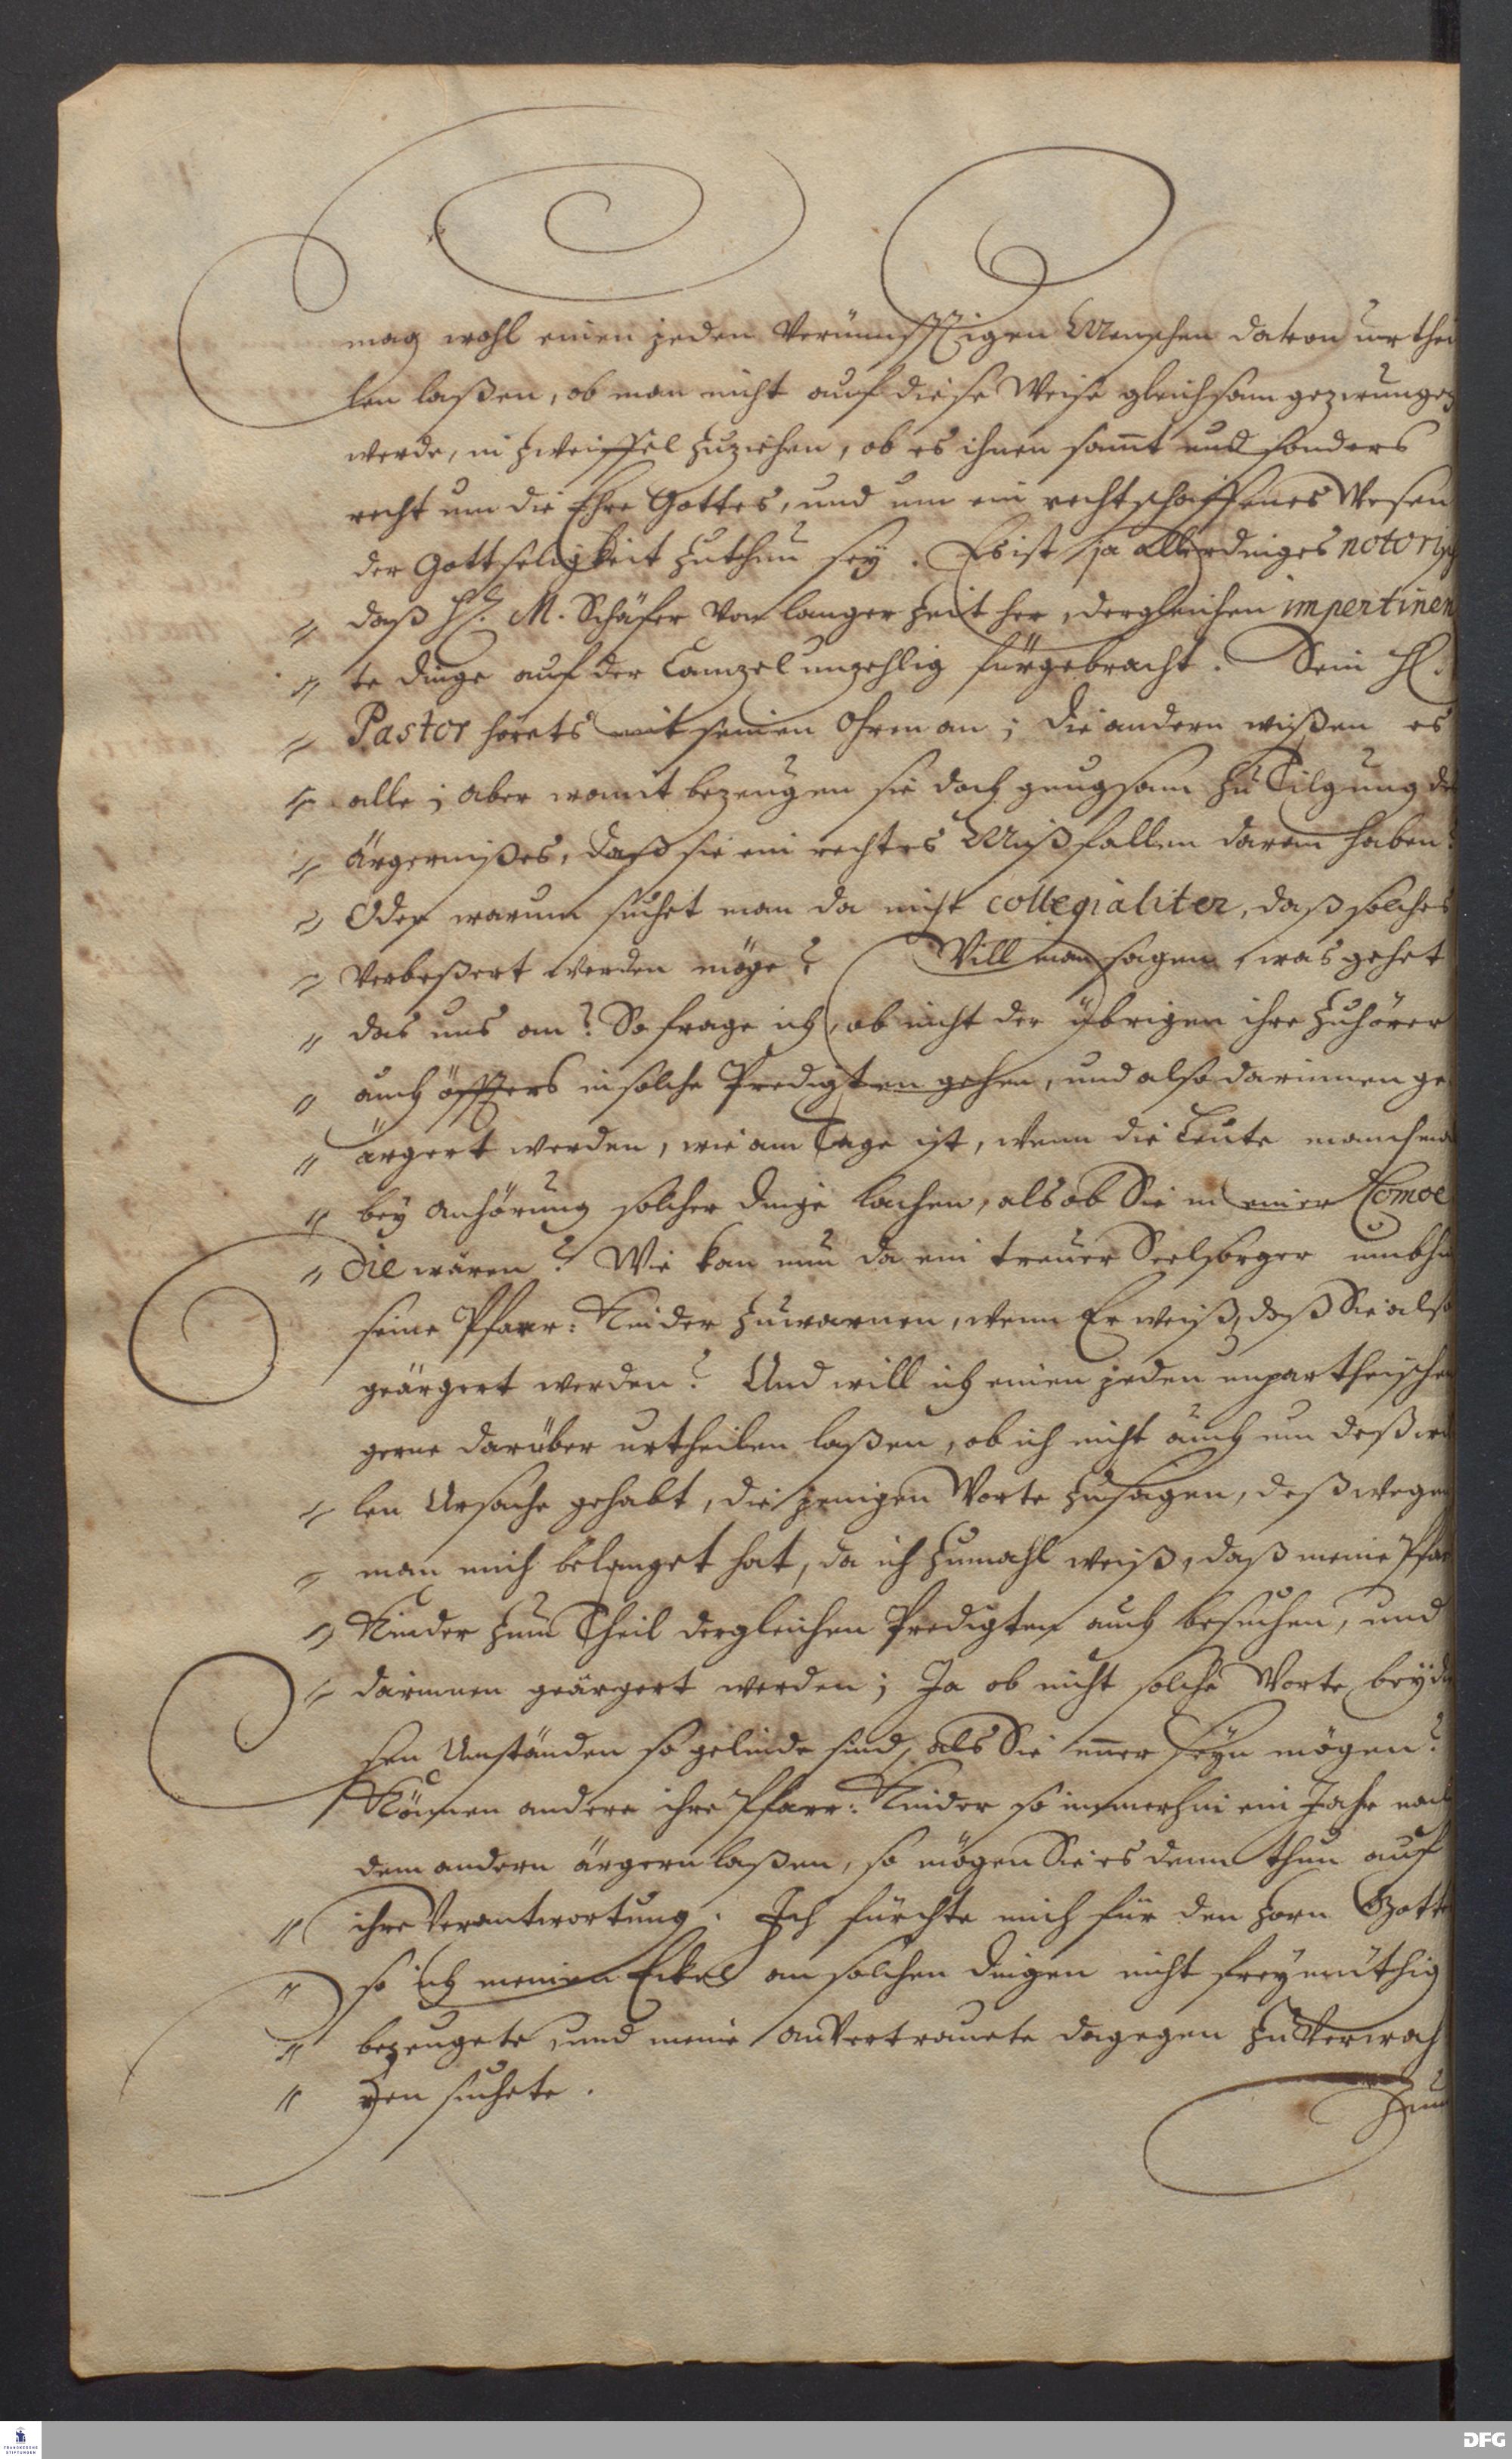 mag wohl einen jeden Vernünfftigen Menschen davon urthei
len laßen, ob man nicht auf diese Weise gleichsam gezwungen
werde, in Zweiffel zuziehen, ob es ihnen samt und sonders
recht um die Ehre Gottes, und um ein rechtschaffenes Wesen
der Gottseligkeit zuthun sey. Es ist ja allerdinges notorisch
〃 daß H. M. Schäfer von langer Zeit her, dergleichen impertinen
〃 te dinge auf der Cantzel unzehlig fürgebracht. Sein H.
〃 Pastor hörets mit seinen Ohren an; die andern wißen es
〃 alle; aber womit bezeugen sie doch gnugsam zu Tilgung des
〃 ärgernißes, daß sie ein rechtes Mißfallen daran haben?
〃 Oder warum suchet man da nicht collegialiter, daß solches
〃 verbeßert werden möge? Will man sagen, was gehet
〃 das uns an? So frage ich, ob nicht der übrigen ihre Zuhörer
〃 auch öffters in solche Predigten gehen, und also darinnen ge
〃 ärgert werden, wie am Tage ist, wenn die Leute manchmal
〃 bey Anhörung solcher dinge lachen, als ob Sie in einer Comoe
〃 die wären? Wie kan nun da ein treuer Seelsorger umbhin
seine Pfarr-Kinder zuwarnen, wenn Er weiß, daß Sie also
geärgert werden? Und will ich einen jeden unpartheischen
gerne darüber urtheilen laßen, ob ich nicht auch um deßwil
〃 len Ursache gehabt, die jenigen Worte zusagen, deßwegen
〃 man mich belanget hat, da ich zumahl weiß, daß meine Pfarr
〃 Kinder zum Theil dergleichen Predigten auch besuchen, und
〃 darinnen geärgert werden; Ja ob nicht solche Worte bey die
sen Umständen so gelinde sind, als Sie immer seyn mögen?
Können andere ihre Pfarr-Kinder so immerhin ein Jahr nach
dem andern ärgern laßen, so mögen Sie es denn thun auf
〃 ihre Verantwortung. Ich fürchte mich für den Zorn Gottes
〃 so ich meinen Eckel an solchen dingen nicht freymüthig
〃 bezeugete und meine anvertrauete dagegen zu verwah
〃 ren suchete.
Zum
FRANCKESCHE STIFTUNGEN
DFG